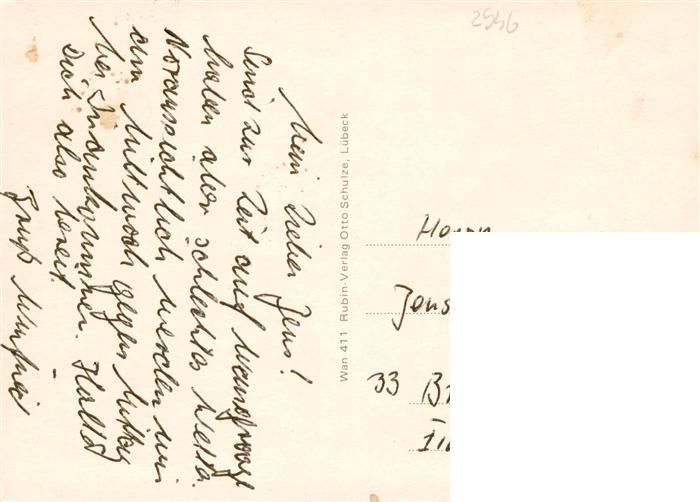 Mein lieber Jens!
Sind zur Zeit auf
haben aber schlechtes Wetter.
Voraussichtlich werden wir
am Mittwoch gegen Mittag
bei Dir ankommen. Halte
Dich also bereit.
Gruß Manfred
Wan 411 Rubin-Verlag Otto Schulze, Lübeck
2546
Herrn
Jens
33